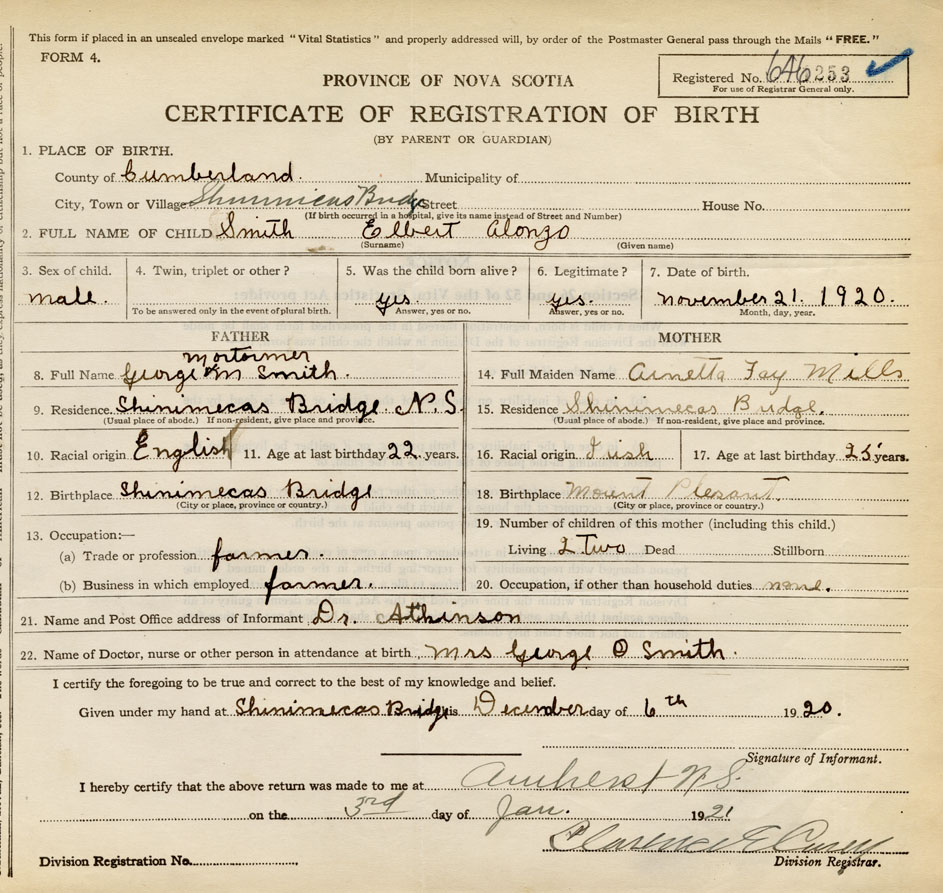 This form if placed in an unsealed envelope marked "Vital Statistics" and properly addressed will, by order of the Postmaster General pass through the Mails "FREE."
FORM 4.
Registered No. 646253
For use of Registrar General only.
PROVINCE OF NOVA SCOTIA
CERTIFICATE OF REGISTRATION OF BIRTH
(BY PARENT OR GUARDIAN)
1. PLACE OF BIRTH.
County of Cumberland. Municipality of
City, Town or Village Shinimicas Bridge Street House No.
(If birth occurred in a hospital, give its name instead of Street and Number)
2. FULL NAME OF CHILD Smith Elbert Alonzo
(Surname) (Given name)
3. Sex of child. 4. Twin, triplet or other? 5. Was the child born alive? 6. Legitimate? 7. Date of birth.
male. yes. yes. november 21. 1920.
To be answered only in the event of plural birth. Answer, yes or no. Answer, yes or no. Month, day, year.
FATHER MOTHER
mortormer
8. Full Name George M Smith. 14. Full Maiden Name Arnetta Fay Mills
9. Residence. Shinimecas Bridge. N.S. 15. Residence Shinimecas Bridge.
(Usual place of abode.) If non-resident, give place and province. (Usual place of abode.) If non-resident, give place and province.
10. Racial origin English 11. Age at last birthday 22. years. 16. Racial origin Irish 17. Age at last birthday 25 years.
12. Birthplace Shinimecas Bridge 18. Birthplace Mount Plesant.
(City or place, province or country.) (City or place, province or country.)
13. Occupation:— 19. Number of children of this mother (including this child.)
(a) Trade or profession farmer. Living 2 Two Dead Stillborn
(b) Business in which employed farmer. 20. Occupation, if other than household duties none.
21. Name and Post Office address of Informant Dr. Atkinson
22. Name of Doctor, nurse or other person in attendance at birth Mrs George O Smith.
I certify the foregoing to be true and correct to the best of my knowledge and belief.
Given under my hand at Shinimecas Bridge this December day of 6th 1920.
Signature of Informant.
I hereby certify that the above return was made to me at Amherst N.S.
on the 3rd day of Jan. 1921
Clarence E
Division Registration No. Division Registrar.